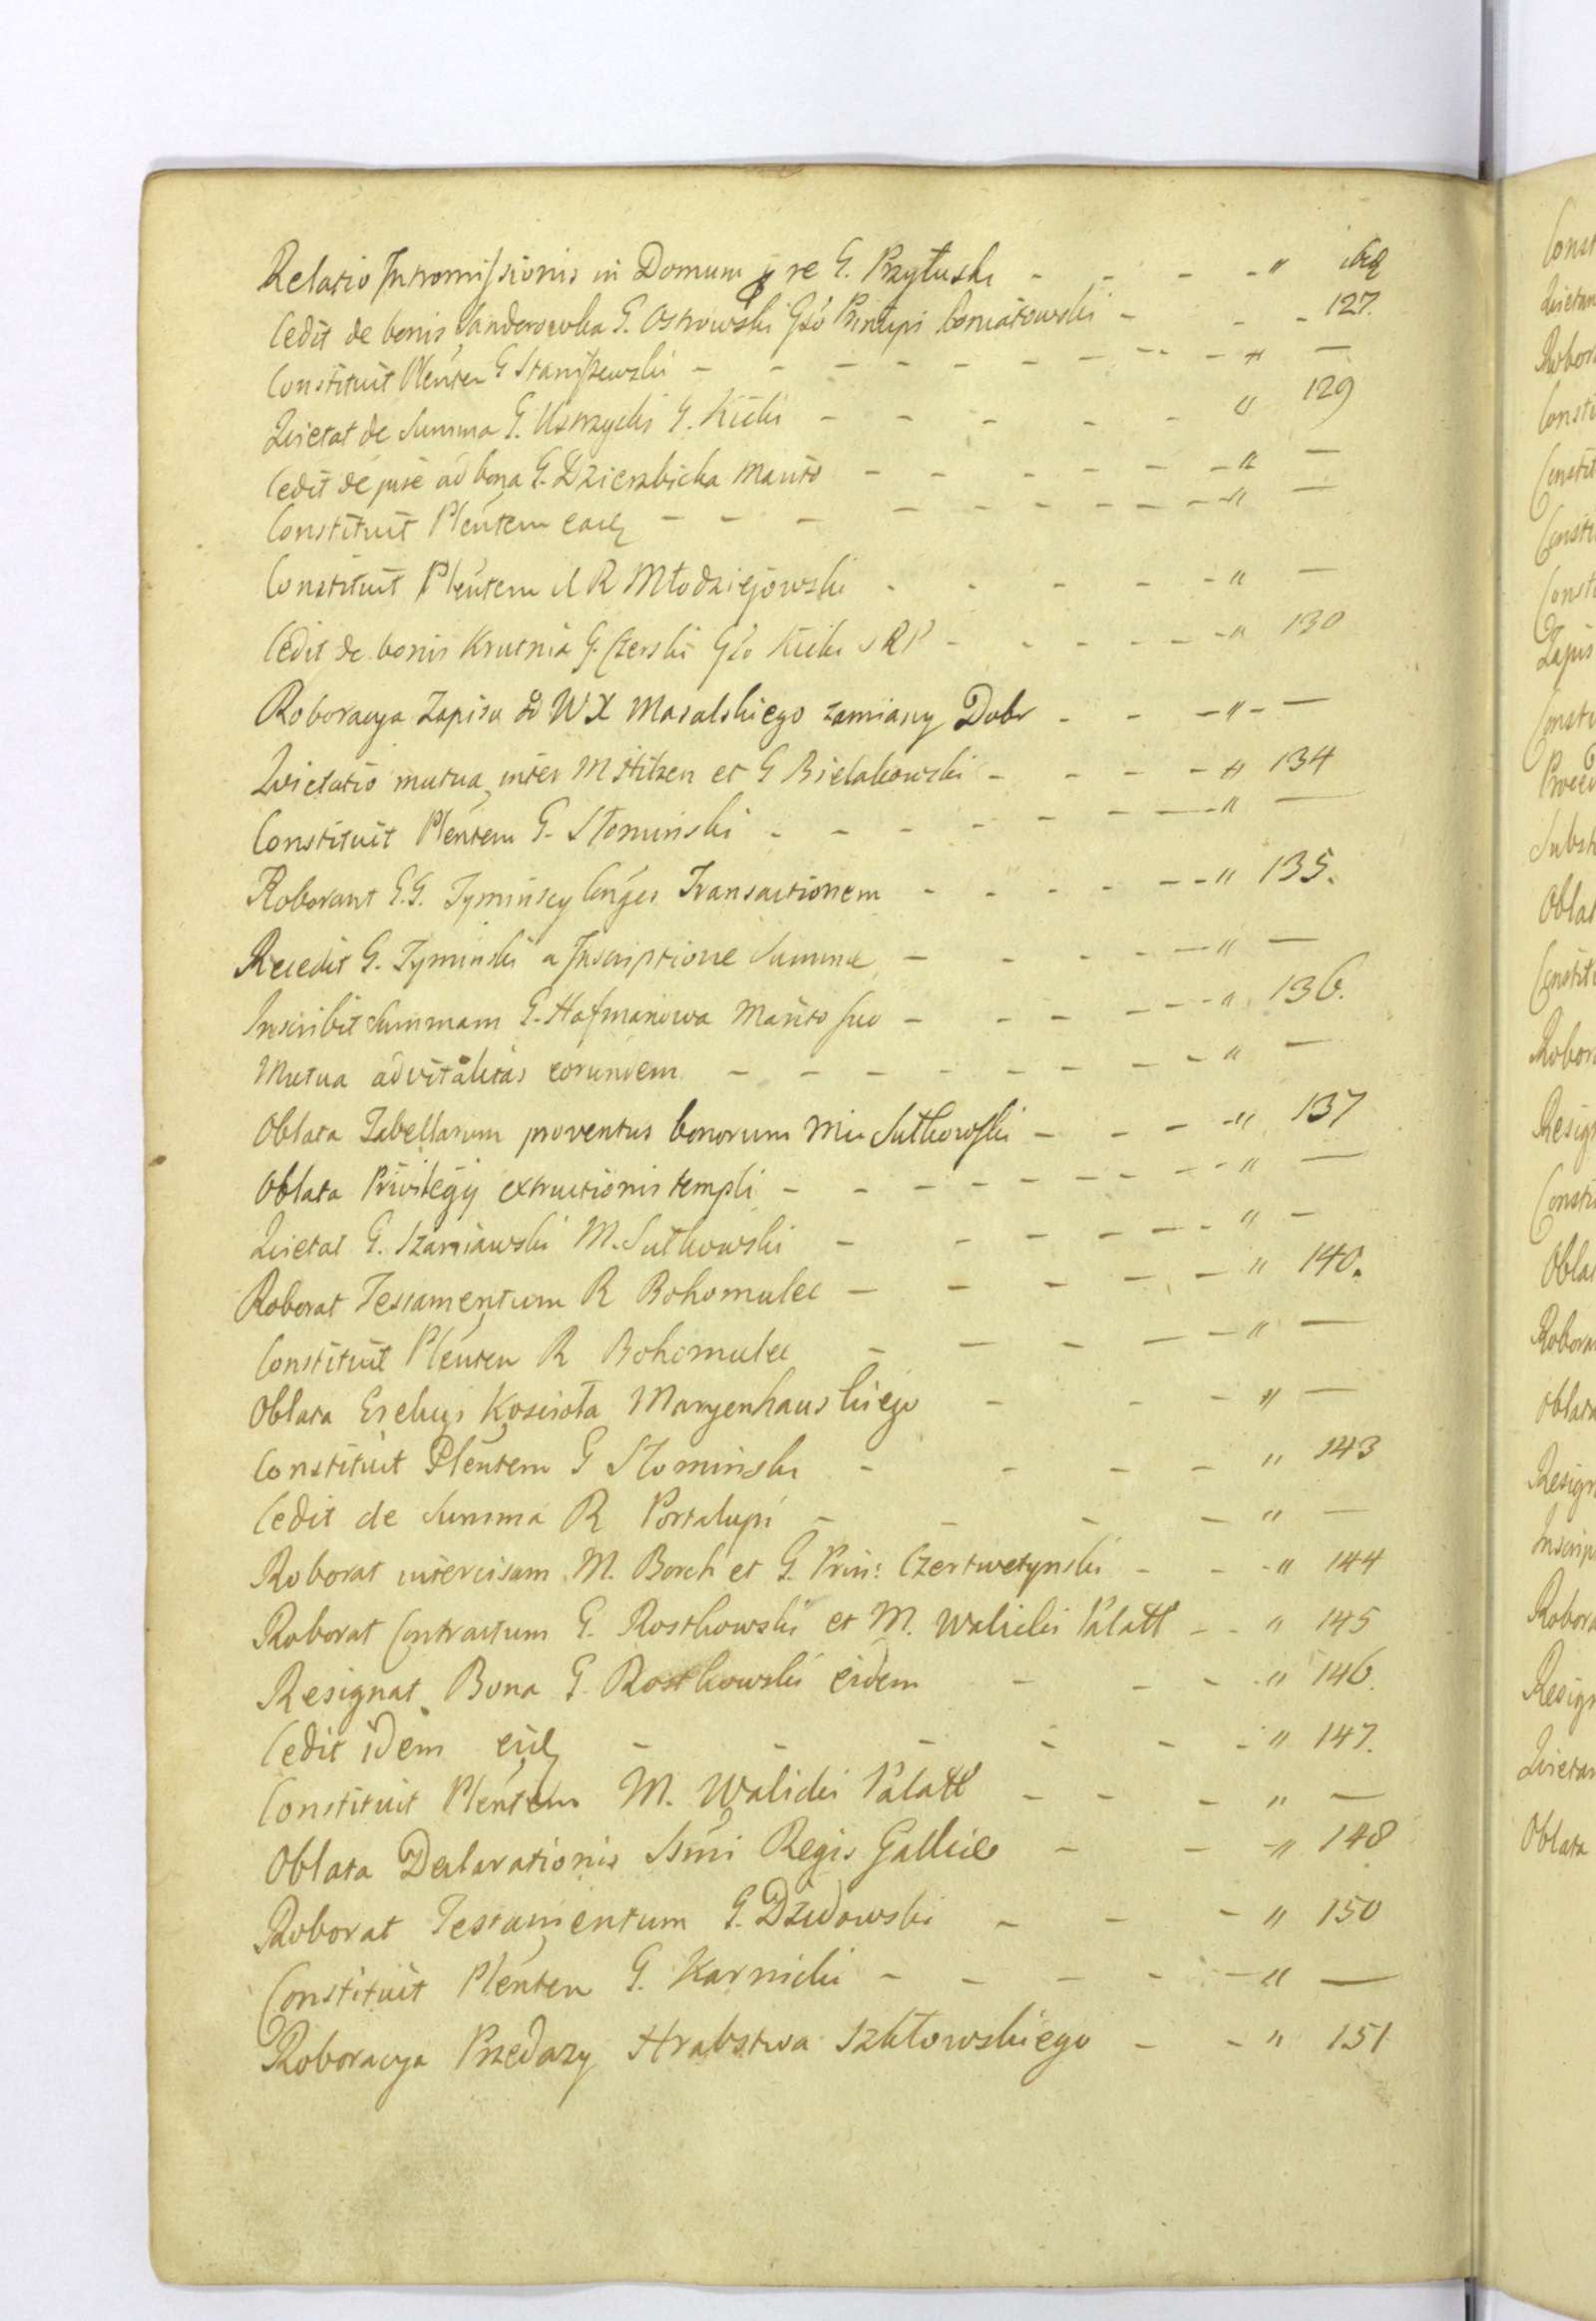 Relatio Intromissionis in Domum re G. Przyłuski - - - - " ibq
Cedit de bonis Sanderowka G. Ostrowski Gso Principi Poniatowski - - - 127.
Constituit Plenten G Staniszewski - - - - - - - - - " —
Quietat de Summa G. Ustrzycki G. Kicki - - - - - " 129
Cedit de jure ad bona G. Dzierzbicka Marito - - - - - - " —
Constituit Plentem eadq - - - - - - - - - " —
Constituit Plentem R Młodziejowski - - - - - " —
Cedit de bonis Krutnia G. Czerski Gso Kicki RP - - - - - " 130
Roboracya Zapisu od WX Masalskiego zamiany Dobr - - - " - —
Quietatio mutua inter M Hilzen et G Bielakowski - - - - " 134
Constituit Plentem G. Słominski - - - - - - - " —
Roborant G.G. Tyminscy Conges Transactionem - - - - - - " 135.
Recedit G. Tyminski a Inscriptione Summae - - - - - " —
Inscribit Summam G. Hofmanowa Marito suo - - - - - " 136.
Mutua advitalitas eorundem - - - - - - - - " —
Oblata Tabellarum proventus bonorum Sułkowski - - - - " 137
Oblata Privilegij extructionis templi - - - - - - - - " —
Quietat G. Szaniawski M. Sułkowski - - - - - - " —
Roborat Testamentum R Bohomulec - - - - - " 140.
Constituit Plenten R Bohomulec - - - - - " —
Oblata Erekcyi Koscioła Maryenhauskiego - - - " —
Constituit Plentem G Słominski - - - - " 143
Cedit de Summa R Portalupi - - - - " —
Roborat intercisam M. Borch et G. Prin: Czertwetynski - - - " 144
Roborat Contractum G. Rostkowski et M. Walicki Palatt - - " 145
Resignat Bona G. Rostkowski eidem - - - - " 146.
Cedit idem eidq - - - - - - " 147.
Constituit Plentem M. Walicki Palatt - - - " —
Oblata Declarationis Ssmi Regis Galliae - - - " 148
Roborat Testamentum G. Dzidowski - - - " 150
Constituit Plenten G. Karnicki - - - - - " —
Roboracya Przedazy Hrabstwa Szkłowskiego - - " 151